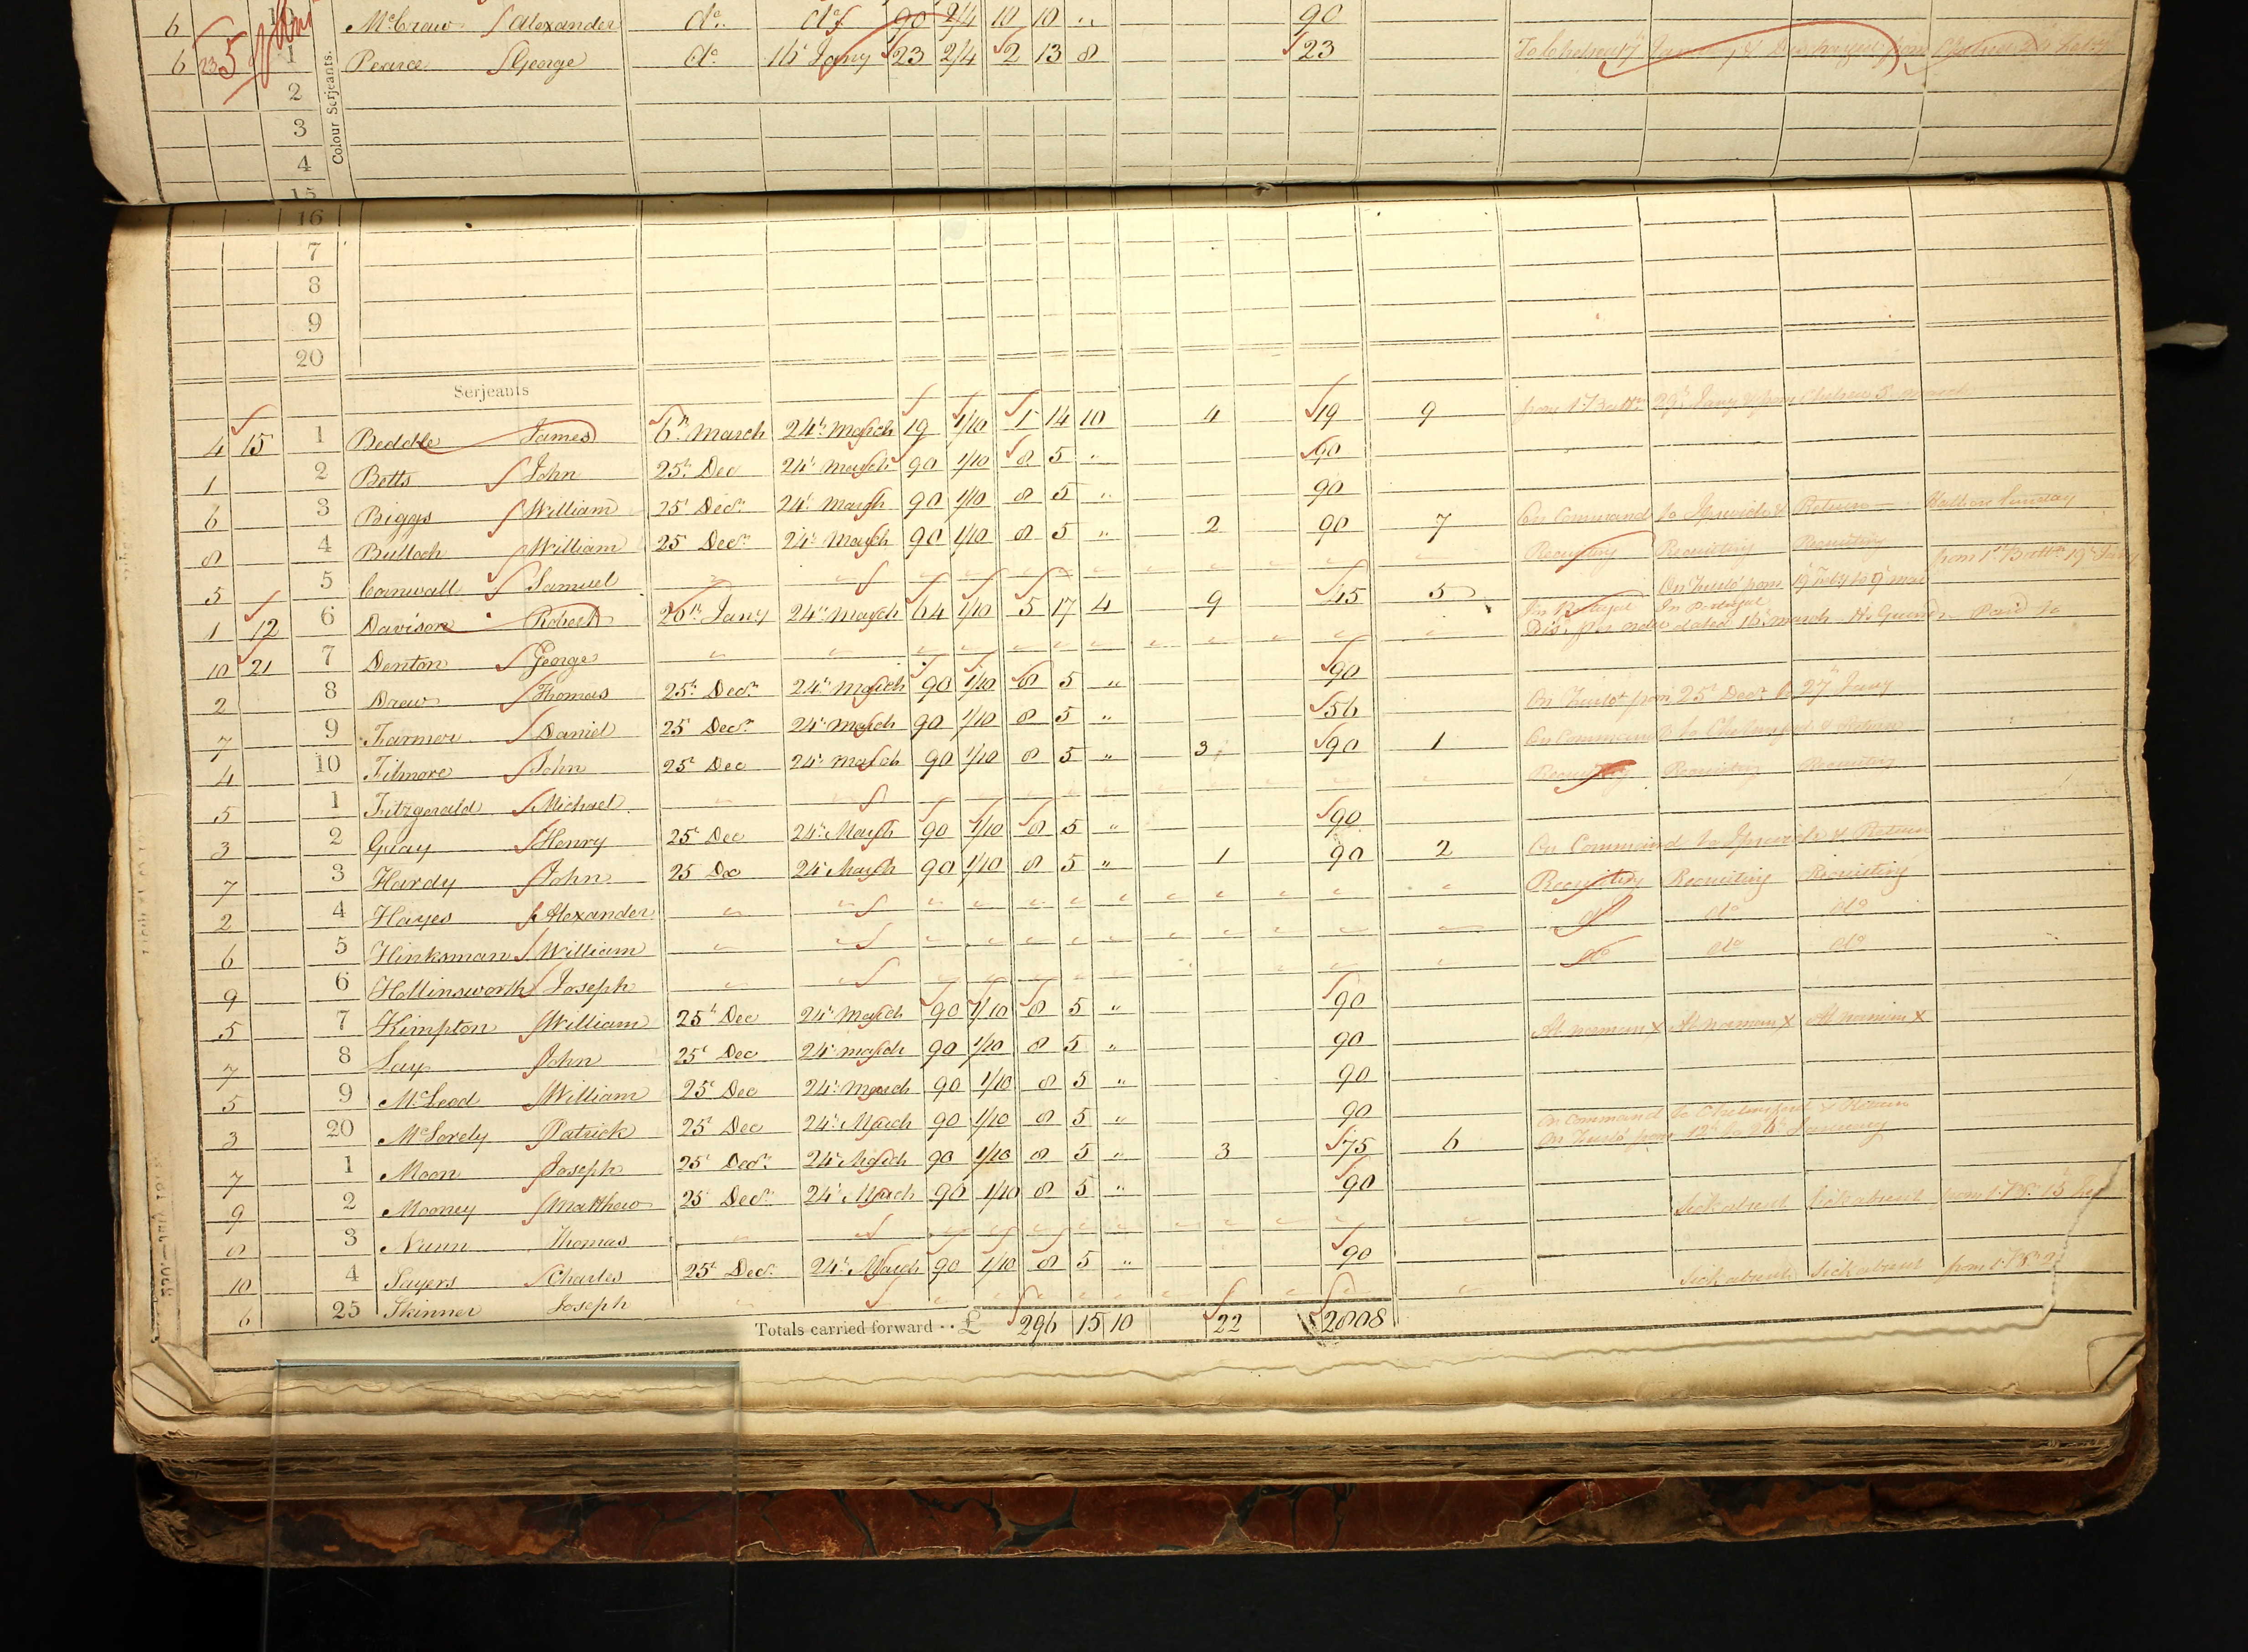 6 McCraw Alexander do. do. 90 2/4 10 10 " 90
6 23 5 1 Pearce George do. 16 Jany 23 2/4 2 13 8 23
Colour Serjeants.
2
3
4
15
16
7
8
9
20
Serjeants
4 15 1 Beddle James 6th March 24th March 19 1/10 1 14 10 4 19 9 from 1st Battn 29th Jany from Chelsea 5th March
1 2 Betts John 25th Dec 24th March 90 1/10 8 5 " 90
6 3 Biggs William 25th Decr 24th March 90 1/10 8 5 " 90
8 4 Bulloch William 25 Decr 24th March 90 1/10 8 5 " 2 90 7 On Command to Ipswich & Return Halt on Sunday
5 5 Cornwall Samuel Recruiting Recruiting Recruiting
1 12 6 Davison Robert 20th Jany 24th March 64 1/10 5 17 4 9 45 5 On Furlo' from 19 Feby to 9 from 1st Battn 19th Jany
10 21 7 Denton George In Portugal In Portugal Dis. per order dated 16th March H. Guards Paid to
2 8 Drew Thomas 25th Decr 24th March 90 1/10 8 5 " 90
7 9 Farmer Daniel 25 Decr 24th March 90 1/10 8 5 " 56 On Furlo' from 25th Decr to 27th Jany
4 10 Filmore John 25th Dec 24th March 90 1/10 8 5 " 3 90 1 On Command to Chelmsford & Return
5 1 Fitzgerald Michael Recruiting Recruiting Recruiting
3 2 Gray Henry 25th Dec 24th March 90 1/10 8 5 " 90
7 3 Hardy John 25 Dec 24th March 90 1/10 8 5 " 1 90 2 On Command to Ipswich & Return
2 4 Hayes Alexander Recruiting Recruiting Recruiting
6 5 Hinksman William do do do
9 6 Hollinsworth Joseph do do do
5 7 Kimpton William 25th Dec 24th March 90 1/10 8 5 " 90
7 8 Lay John 25th Dec 24th March 90 1/10 8 5 " 90 At Norman X At Norman X At Norman X
5 9 McLeod William 25th Dec 24th March 90 1/10 8 5 " 90
3 20 McSorely Patrick 25th Dec 24th March 90 1/10 8 5 " 90
7 1 Moon Joseph 25th Decr 24th March 90 1/10 8 5 " 3 75 6 On Command to Chelmsford & Return On Furlo' from 12th to 26th January
9 2 Mooney Matthew 25 Decr 24th March 90 1/10 8 5 " 90
8 3 Nunn Thomas Sick absent Sick absent from 1st B. 15
10 4 Sayers Charles 25th Decr 24th March 90 1/10 8 5 " 90
6 25 Skinner Joseph Sick absent Sick absent from 1st B.
Totals carried forward .. £ 296 15 10 22 2808